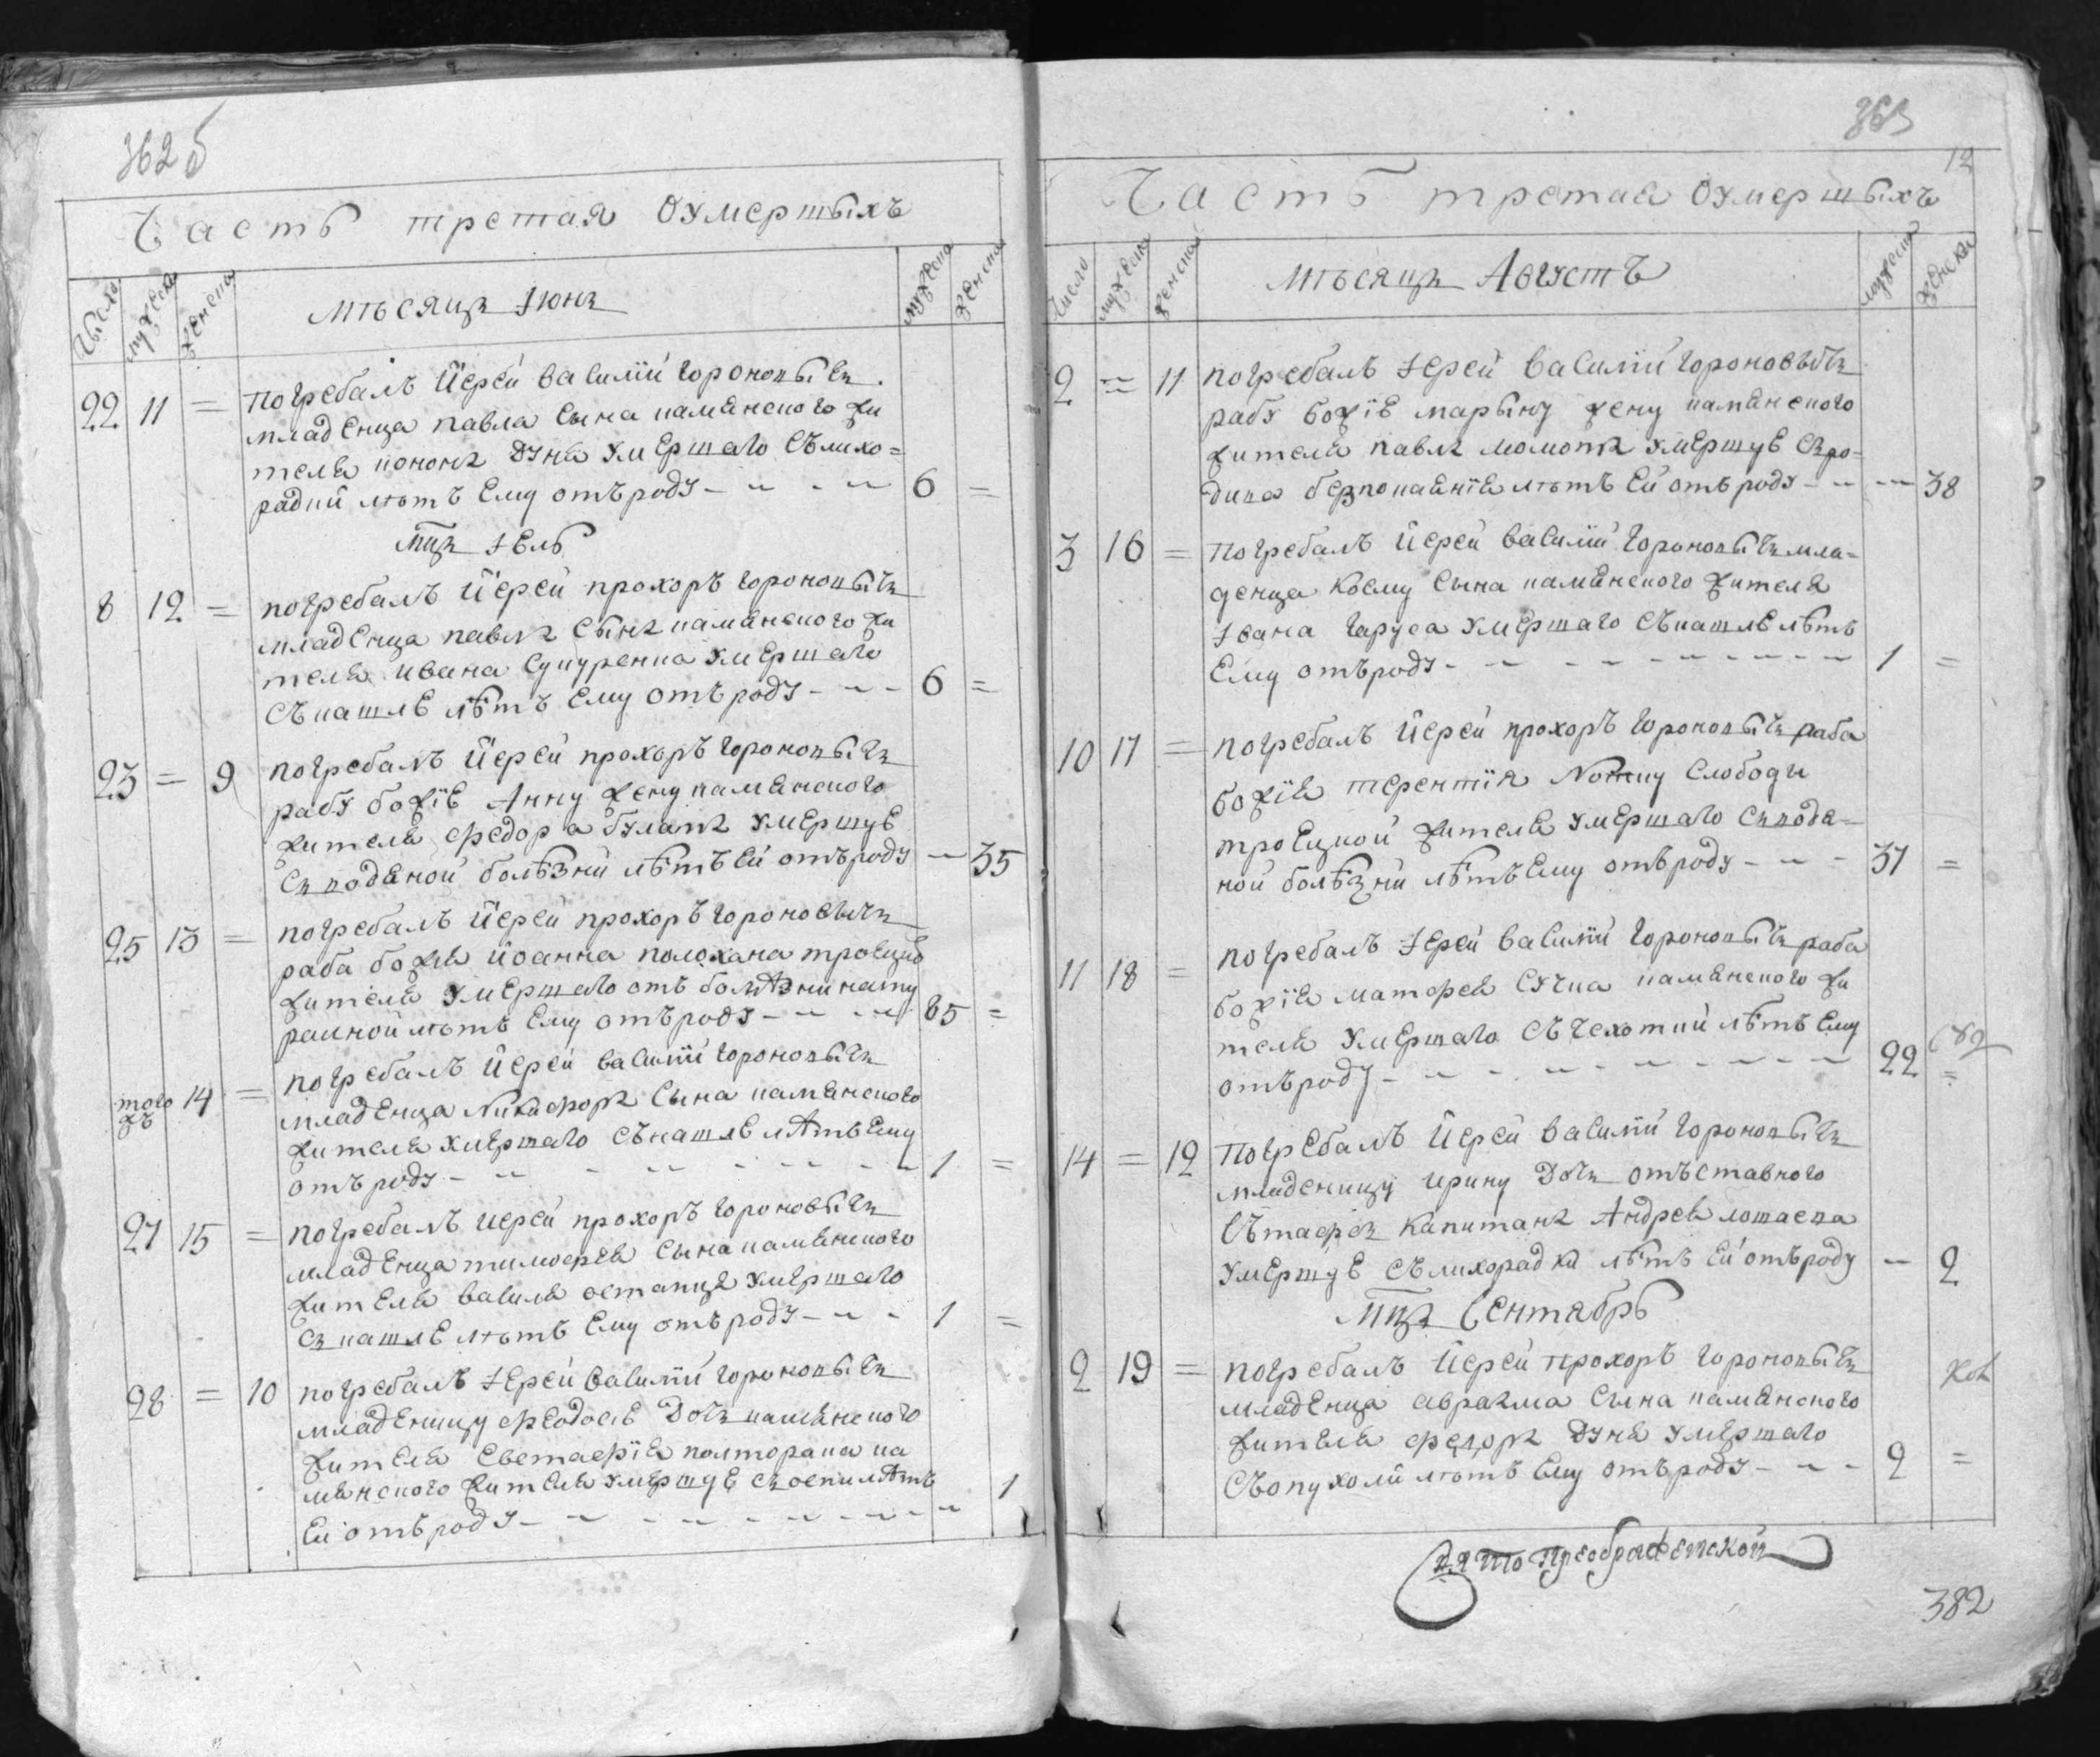 362 б
Часть третая Оумершыхъ
Число мужеска женска мѣсяцъ Iюнъ мужеска женска
22 11 = погребалъ Йерей Василий Гороновычъ
младенца павла сына каменского жи
теля конона дуна умершаго съ лихо=
радки лѣтъ ему отъ роду - - - 6 =
мцъ Iель
8 12 = погребалъ Йерей прохоръ Гороновычъ
младенца павла сына каменского жи
теля ивана умершаго
съ кашле лѣтъ ему отъ роду - - - 6 =
23 = 9 погребалъ Йерей прохоръ Гороновычъ
рабу божїе Анну жену каменского
жителя федора умершуе
съ водяной болѣзни лѣтъ ей отъ роду - 35
25 13 = погребалъ Йерей прохоръ Гороновычъ
раба божия иоанна троецко
жителя умершаго отъ болѣзни нату
ралной лѣтъ ему отъ роду - - - 85 =
того жъ 14 = погребалъ Йерей василий Гороновычъ
младенца Никифора сына каменского
жителя умершаго съ кашле лѣтъ ему
отъ роду - - - - - 1 =
27 15 = погребалъ иерей прохоръ Гороновычъ
младенца тимофея сына каменского
жителя василя остапця умершаго
съ кашле лѣтъ ему отъ роду - - - 1 =
28 = 10 погребалъ Iерей василий Гороновычъ
младеницу феодосие дочъ каменского
жителя евстафїя полторака ка
менского жителя умершуе съ оспи лѣтъ
ей отъ роду - - - - - 1
363
12
Часть третая Оумершыхъ
Число мужеска женска мѣсяцъ Августъ мужеска женска
2 = 11 погребалъ Iерей василий Гороновычъ
рабу божїе марыну жену каменского
жителя павла момота умершуе съ ро=
дива безпокаянїя лѣтъ ей отъ роду - - - 38
3 16 = погребалъ Иерей василий Гороновычъ мла=
денца козму сына каменского жителя
Iвана гаруса умершаго съ кашле лѣтъ
ему отъ роду - - - - - 1 =
10 17 = погребалъ Иерей прохоръ Гороновычъ раба
божїя терентїя слободы
троецкой жителя умершаго съ водя=
ной болѣзни лѣтъ ему отъ роду - - - 37 =
11 18 = погребалъ Iерей василий Гороновычъ раба
божїя матфея каменского жи
теля умершаго съ чехотки лѣтъ ему
отъ роду - - - - - 22 =
14 = 12 погребалъ Иерей василий Гороновычъ
младеницу ирину дочъ отъставного
капитана Андрея
умершуе съ лихорадки лѣтъ ей отъ роду - 2
мцъ Сентябрь
2 19 = погребалъ Иерей прохоръ Гороновычъ
младенца авраама сына каменского
жителя федора дуна умершаго
съ опухоли лѣтъ ему отъ роду - - - 2 =
Преображенской
382